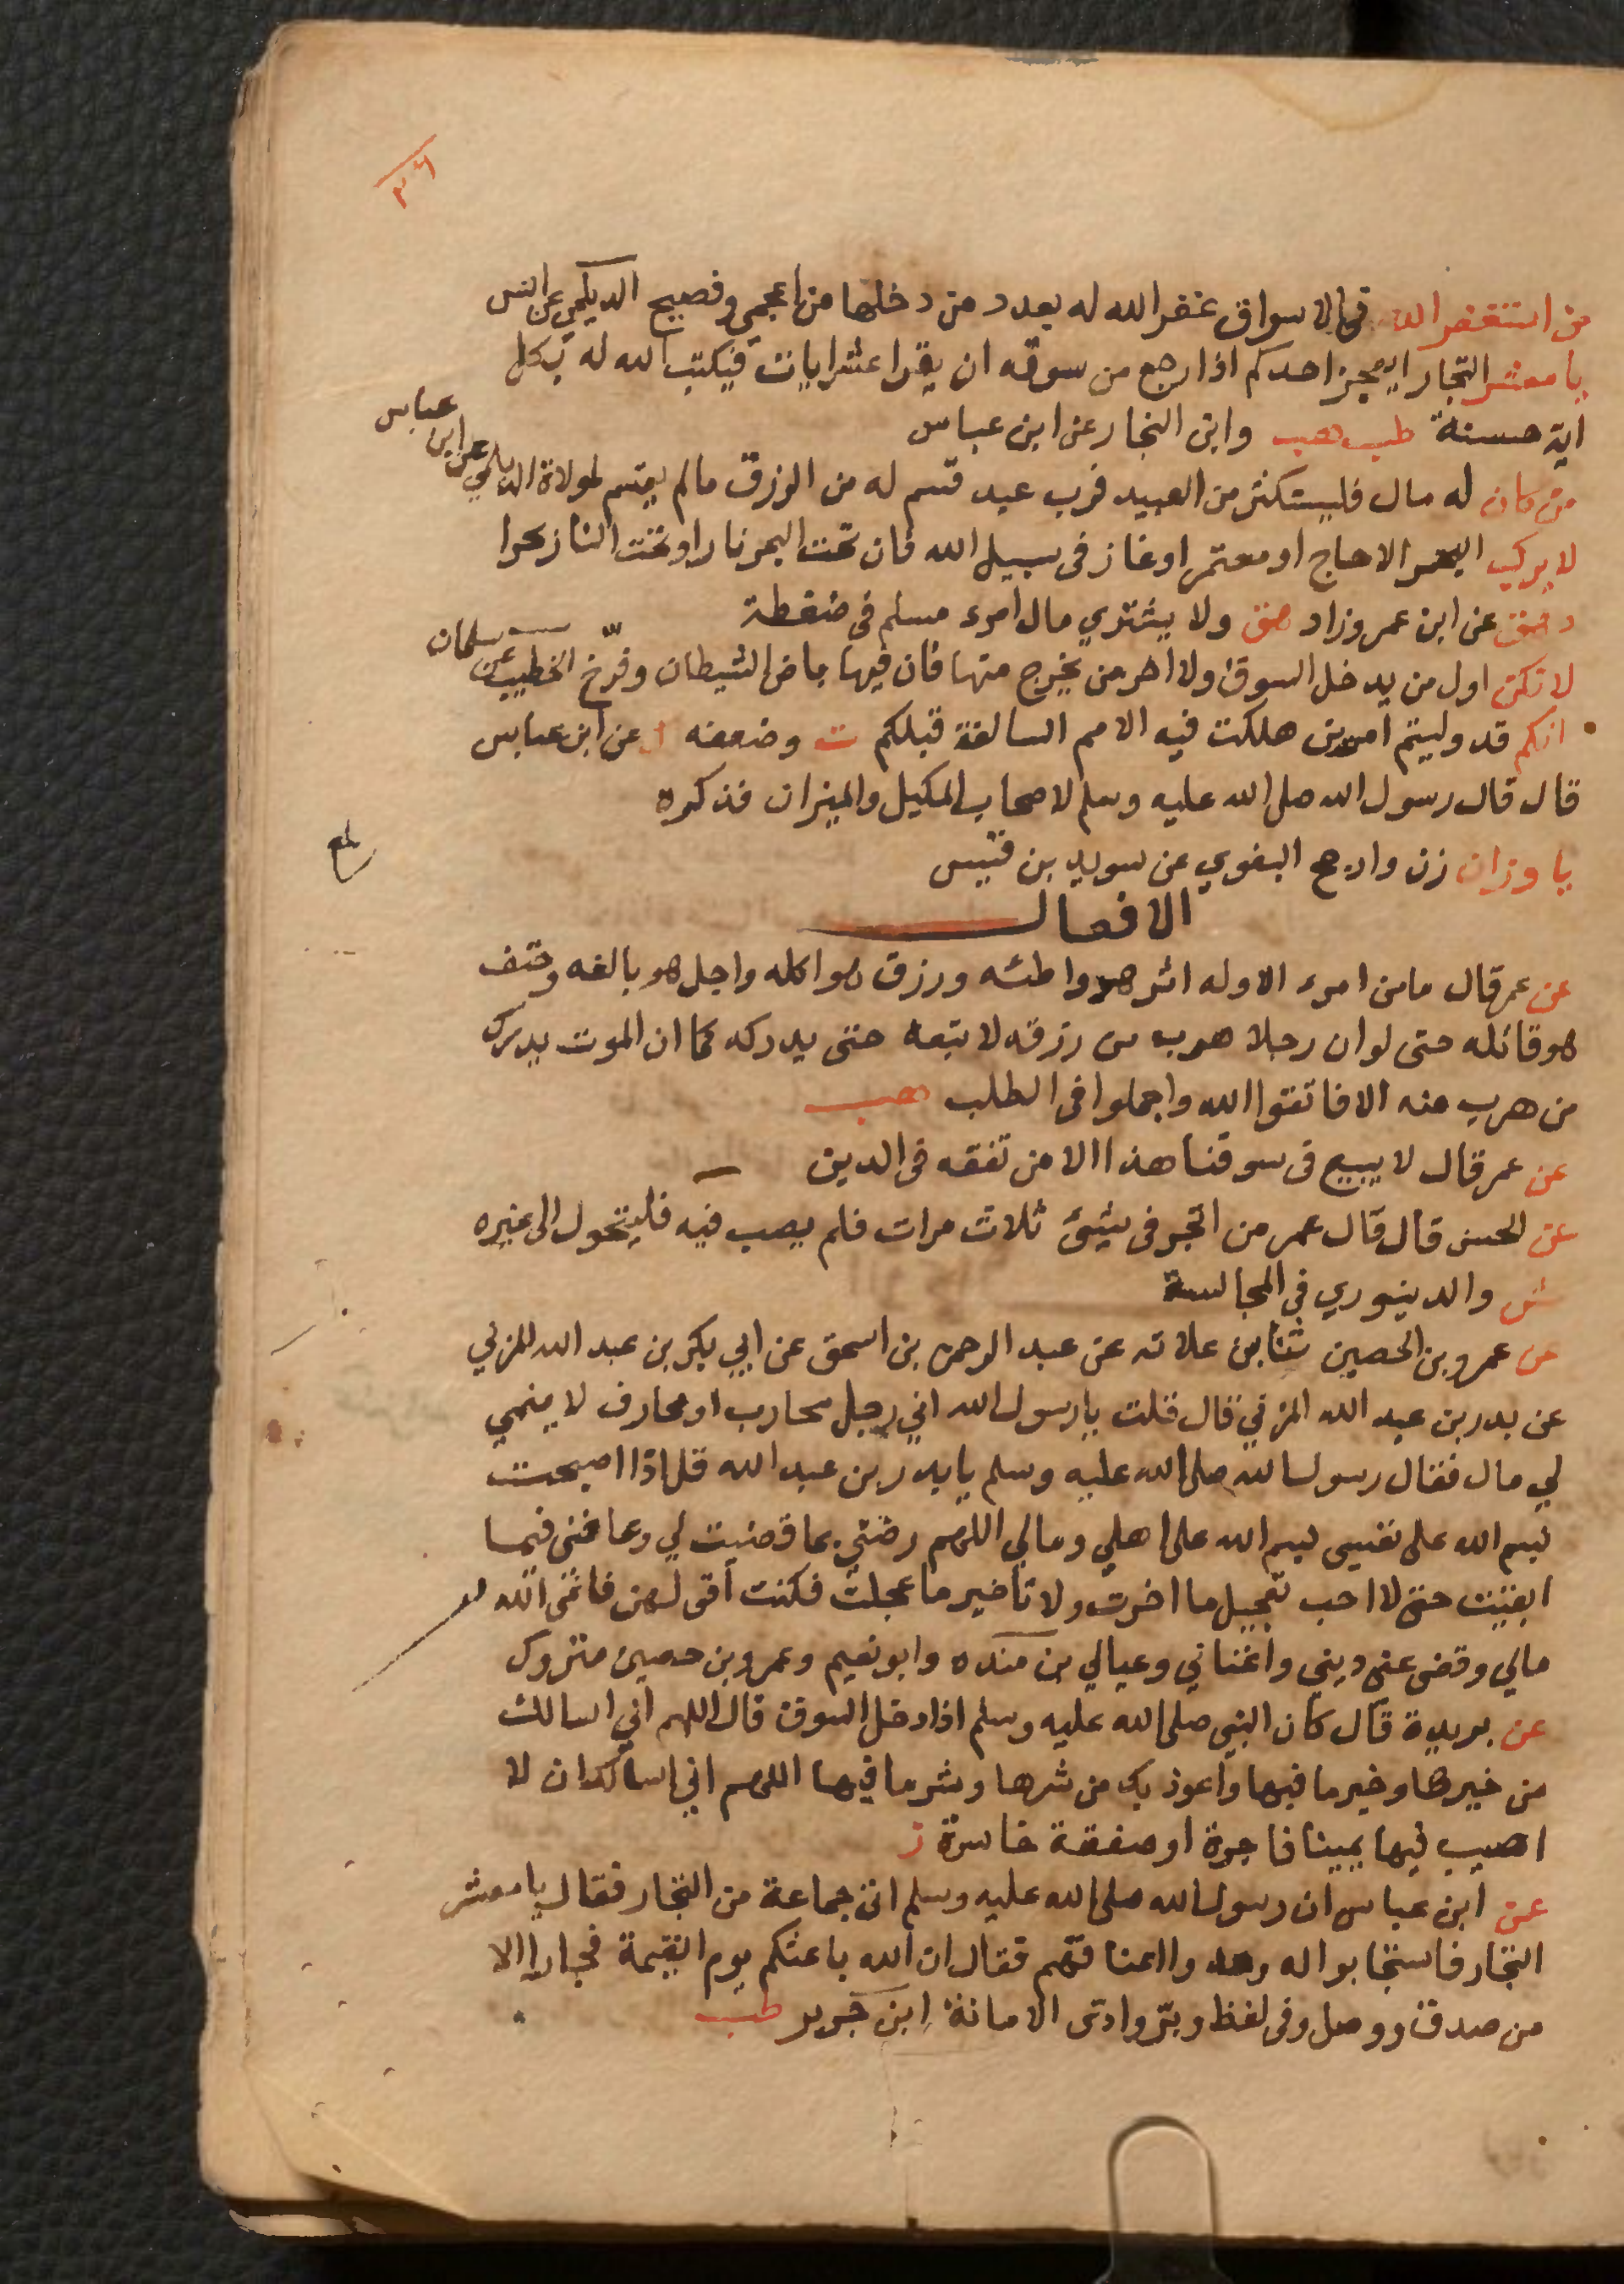 ٣٦
من استغفر الله في الاسواق غفر الله له بعدد من دخلها من اعجمي وفصيح الديلمي عن انس
يا معشر التجار ايعجز احدكم اذا رجع من سوقه ان يقرا عشر ايات فيكتب الله له بكل
اية حسنة طب هب وابن النجار عن ابن عباس
من كان له مال فليستكثر من العبيد فرب عبد قسم له من الرزق مالم يقسم لمولاة الديلمي عن ابن عباس
لا يركب البحر الا حاج او معتمر او غاز في سبيل الله فان تحت البحر نارا وتحت النار بحرا
د هق عن ابن عمر وزاد هق ولا يشتري مال امرء مسلم في ضغطة
لا تكن اول من يدخل السوق ولا اخر من يخرج منها فان فيها باض الشيطان وفرّخ الخطيب عن سلمان
انكم قد وليتم امرين هلكت فيه الامم السالفة قبلكم ت وضعفه ك عن ابن عباس
قال قال رسول الله صلى الله عليه وسلم لاصحاب المكيل والميزان فذكره
يا وزان زن وارجح البغوي عن سويد بن قيس
الافعال
عن عمر قال مامن امرء الا وله اثر هو واطئه ورزق هو اكله واجل هو بالغه وحتف
هو قاتله حتى لو ان رجلا هرب من رزقه لا تبعه حتى يدركه كما ان الموت يدرك
من هرب منه الا فاتقوا الله واجملوا في الطلب هب
عن عمر قال لا يبيع في سوقنا هذا الا من تفقه في الدين ت
عن الحسن قال قال عمر من اتجر في شيئ ثلاث مرات فلم يصب فيه فليتحول الى غيره
ش والدينوري في المجالسة
عن عمرو بن الحصين ثنا ابن علاثه عن عبد الرحمن بن اسحق عن ابي بكر بن عبد الله المزني
عن بدر بن عبد الله المزني قال قلت يا رسول الله اني رجل محارب او محارف لا ينمي
لي مال فقال رسول الله صلى الله عليه وسلم يا بدر بن عبد الله قل اذا اصبحت
بسم الله على نفسي بسم الله على اهلي ومالي اللهم رضني بما قضيت لي وعافني فيما
ابقيت حتى لا احب تعجيل ما اخرت ولا تاخير ما عجلت فكنت أقولهن فانمى الله
مالي وقضى عني ديني واغناني وعيالي بن منده وابو نعيم وعمرو بن حصين متروك
عن بريدة قال كان النبي صلى الله عليه وسلم اذا دخل السوق قال اللهم اني اسالك
من خيرها وخير ما فيها واعوذ بك من شرها وشر ما فيها اللهم اني اسالك ان لا
اصيب فيها يمينا فاجرة او صفقة خاسرة ز
عن ابن عباس ان رسول الله صلى الله عليه وسلم اتى جماعة من التجار فقال يا معشر
التجار فاستجابوا له ومدوا اعناقهم فقال ان الله باعثكم يوم القيمة فجارا الا
من صدق ووصل وفي لفظ وبرّ وادى الامانة ابن جرير طب